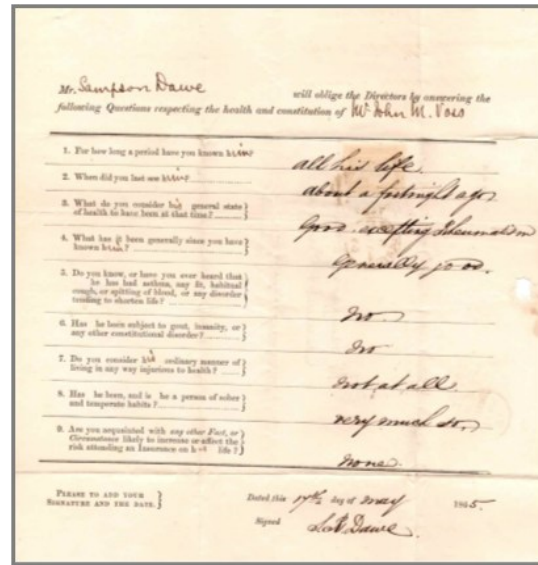 Mr. Sampson Dawe will oblige the Directors by answering the
following Questions respecting the health and constitution of Mr John M. Voso
1. For how long a period have you known him?
all his life.
2. When did you last see him?
about a fortnight ago
3. What do you consider his general state
of health to have been at that time?
Good excepting Rheumatism
4. What has it been generally since you have
known him?
generally good.
5. Do you know, or have you ever heard that
he has had asthma, any fit, habitual
cough, or spitting of blood, or any disorder
tending to shorten life?
no.
6. Has he been subject to gout, insanity, or
any other constitutional disorder?
no
7. Do you consider his ordinary manner of
living in any way injurious to health?
not at all.
8. Has he been, and is he a person of sober
and temperate habits?
very much so.
9. Are you acquainted with any other Fact, or
Circumstance likely to increase or affect the
risk attending an Insurance on his life?
none.
PLEASE TO ADD YOUR
SIGNATURE AND THE DATE.
Dated this 17th day of may 1845.
Signed Dawe.